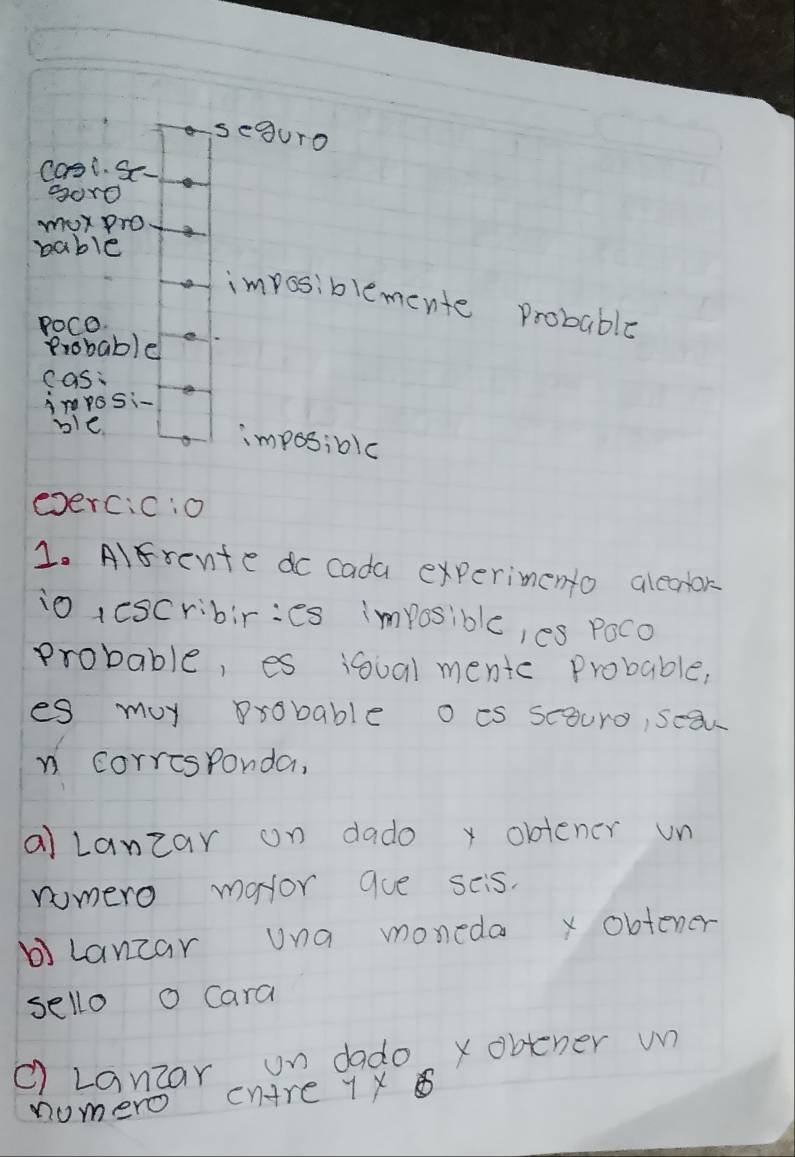 seguro
casi. se-
guro
muy pro-
bable
imposiblemente probable
poco.
Probable
casi
imposi-
ble.
imposible
ejercicio
1. Al frente de cada experimento aleator
io, escribir: es imposible, es poco
probable, es igual mente probable,
es muy probable o es seguro, segu
n corresponda,
a) Lanzar un dado y obtener un
numero mayor que seis.
b) Lanzar una moneda y obtener
sello o cara
c) Lanzar un dado y obtener un
numero entre 1 y 6